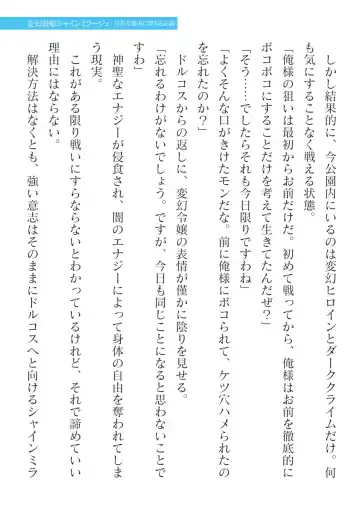 変幻装姫シャインミラージュ
しかし結果的に、今公園内にいるのは変幻ヒロインとダーククライムだけ。何
も気にすることなく戦える状態。
「俺様の狙いは最初からお前だけだ。初めて戦ってから、俺様はお前を徹底的に
ボコボコにすることだけを考えて生きてたんだぜ？」
「そう……でしたらそれも今日限りですわね」
「よくそんな口がきけたモンだな。前に俺様にボコられて、ケツ穴ハメられたの
を忘れたのか？」
ドルコスからの返しに、変幻令嬢の表情が僅かに陰りを見せる。
「忘れるわけがないでしょう。ですが、今日も同じことになると思わないことで
すわ」
神聖なエナジーが侵食され、闇のエナジーによって身体の自由を奪われてしま
う現実。
これがある限り戦いにすらならないとわかっているけれど、それで諦めていい
理由にはならない。
解決方法はなくとも、強い意志はそのままにドルコスへと向けるシャインミラ